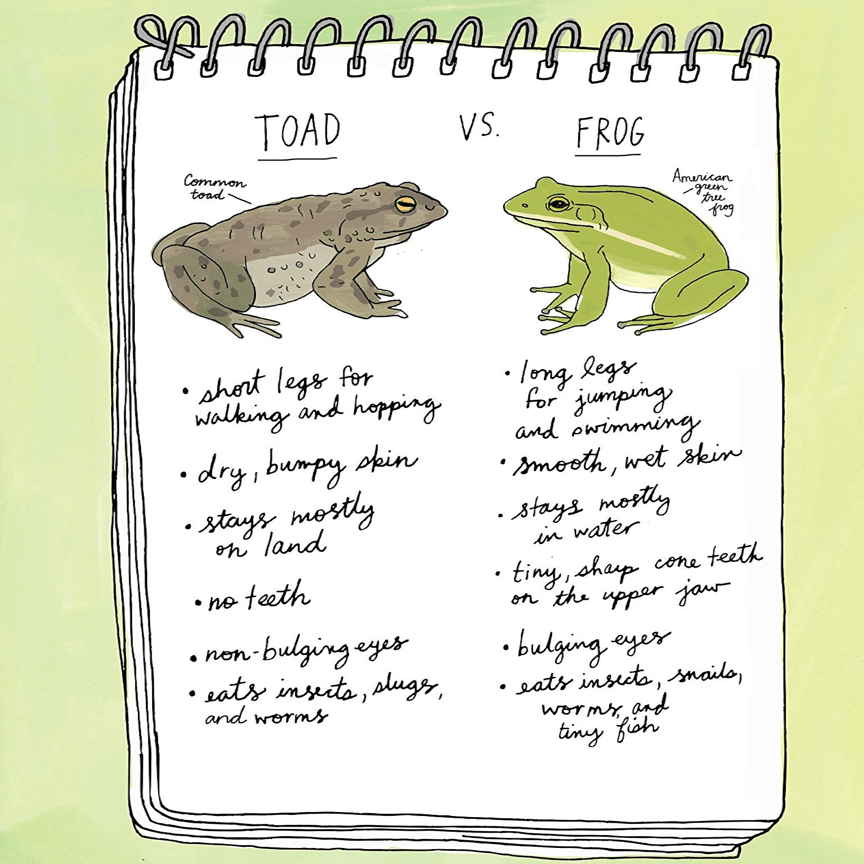 TOAD VS. FROG
Common
toad
American
green
tree
frog
• short legs for
walking and hopping
• dry, bumpy skin
• stays mostly
on land
• no teeth
• non-bulging eyes
• eats insects, slugs,
and worms
• long legs
for jumping
and swimming
• smooth, wet skin
• stays mostly
in water
• tiny, sharp cone teeth
on the upper jaw
• bulging eyes
• eats insects, snails,
worms, and
tiny fish